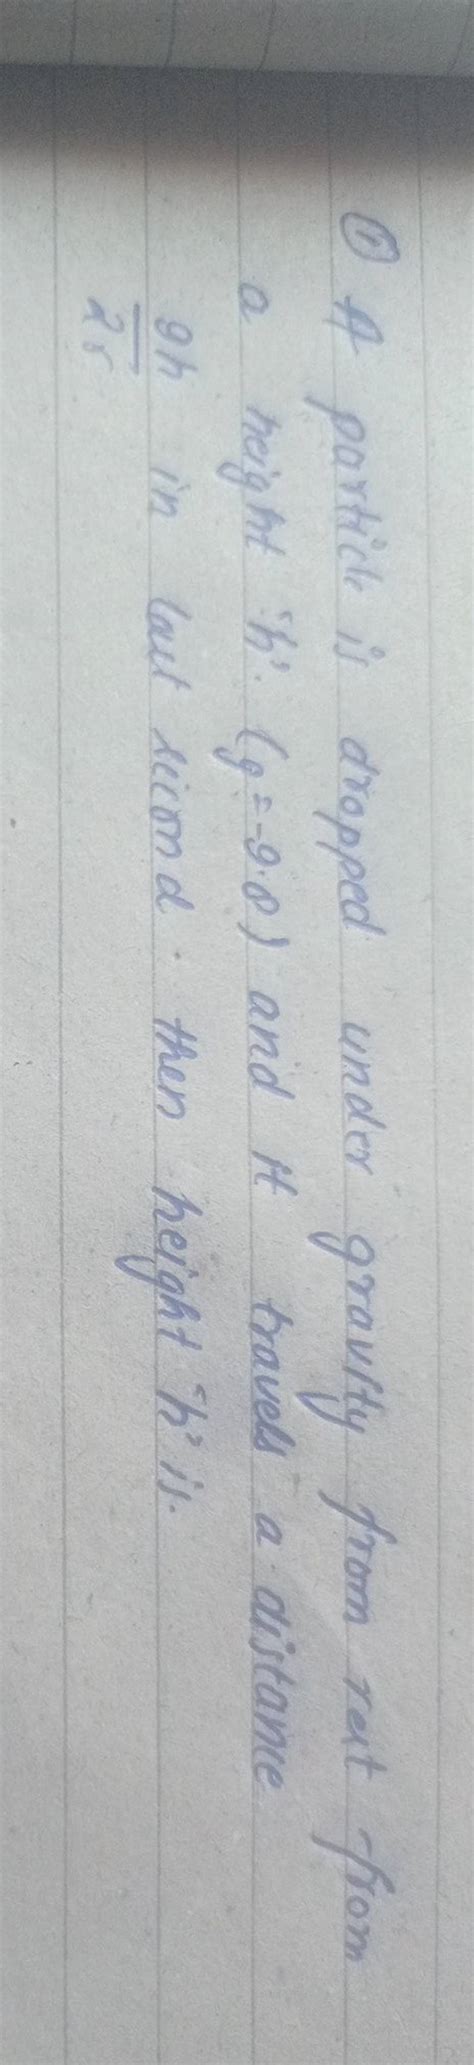 ① A particle is dropped under gravity from rest from
a height "h". (g = -9.8) and it travels a distance
9h/25 in last second. then height "h" is.